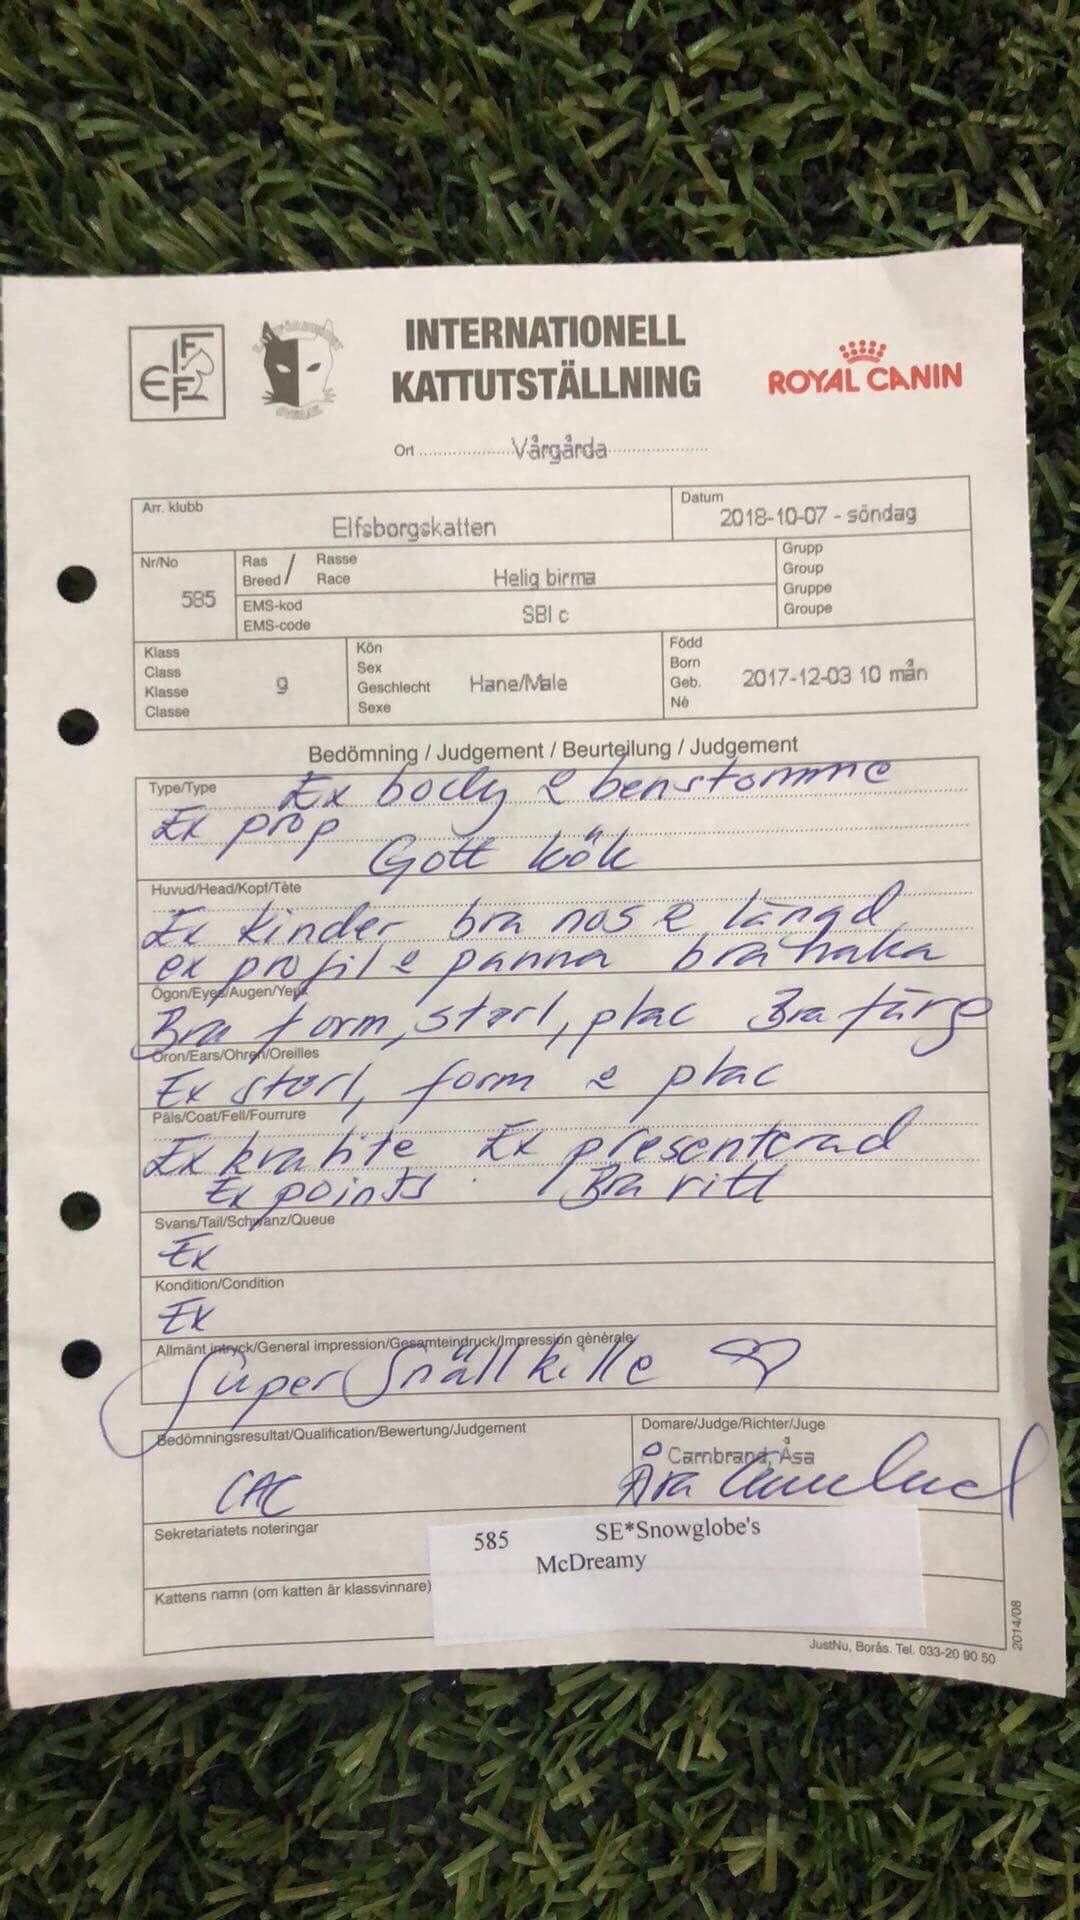 FIFe
INTERNATIONELL
KATTUTSTÄLLNING
ROYAL CANIN
Ort Vårgårda
Arr. klubb
Elfsborgskatten
Datum
2018-10-07 - söndag
Nr/No
585
Ras / Rasse
Breed / Race
Helig birma
EMS-kod
EMS-code
SBI c
Grupp
Group
Gruppe
Groupe
Klass
Class
Klasse
Classe
9
Kön
Sex
Geschlecht
Sexe
Hane/Male
Född
Born
Geb.
Nè
2017-12-03 10 mån
Bedömning / Judgement / Beurteilung / Judgement
Type/Type
Ex body & benstomme
Ex prop
Gott kök
Huvud/Head/Kopf/Tète
Ex kinder bra nos & längd
ex profil & panna bra haka
Ögon/Eyes/Augen/Yeux
Bra form, storl, plac Bra färg
Öron/Ears/Ohren/Oreilles
Ex storl, form & plac
Päls/Coat/Fell/Fourrure
Ex kvalite Ex presenterad
Ex points. Bra vitt
Svans/Tail/Schwanz/Queue
Ex
Kondition/Condition
Ex
Allmänt intryck/General impression/Gesamteindruck/Impression gènèrale
Super Snäll kille
Bedömningsresultat/Qualification/Bewertung/Judgement
CAC
Domare/Judge/Richter/Juge
Carnbrand, Åsa
Åsa Carnbrand
Sekretariatets noteringar
585 SE*Snowglobe's
McDreamy
Kattens namn (om katten är klassvinnare)
JustNu, Borås. Tel. 033-20 90 50
2014/08